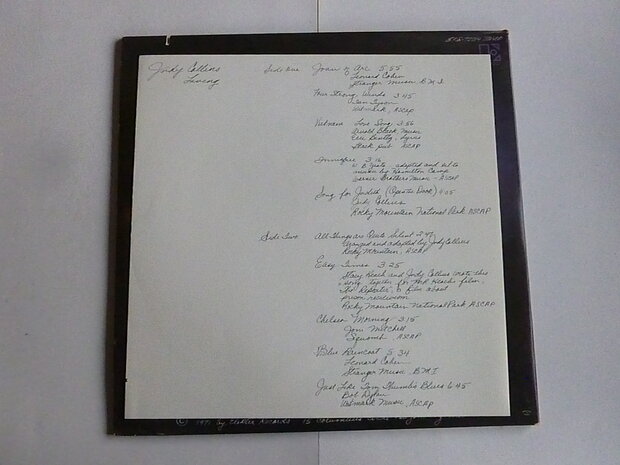 Judy Collins
Living
Side One
Joan of Arc 5:55
Leonard Cohen
Stranger Music B.M.I.
Four Strong Winds 3:45
Ian Tyson
ASCAP
Vietnam Love Song 3:56
Arnold Black Music
Eric Bentley, Lyrics
Black Pub. ASCAP
Innisfree 3:16
W. B. Yeats adapted and set to
music by Hamilton Camp
Warner Brothers Music - ASCAP
Song for Judith (Open the Door) 4:05
Judy Collins
Rocky Mountain National Park ASCAP
Side Two
All Things are Quite Silent 2:47
arranged and adapted by Judy Collins
Rocky Mountain, ASCAP
Easy Times 3:25
Stacy Keach and Judy Collins wrote this
song together for Mr. Keach's film,
The Repeater, a film about
prison recidivism
Rocky Mountain National Park ASCAP
Chelsea Morning 3:15
Joni Mitchell
Siquomb, ASCAP
Blue Raincoat 5:34
Leonard Cohen
Stranger Music, B.M.I.
Just Like Tom Thumb's Blues 6:45
Bob Dylan
Witmark Music, ASCAP
© 1971 by Elektra Records 15 Columbus